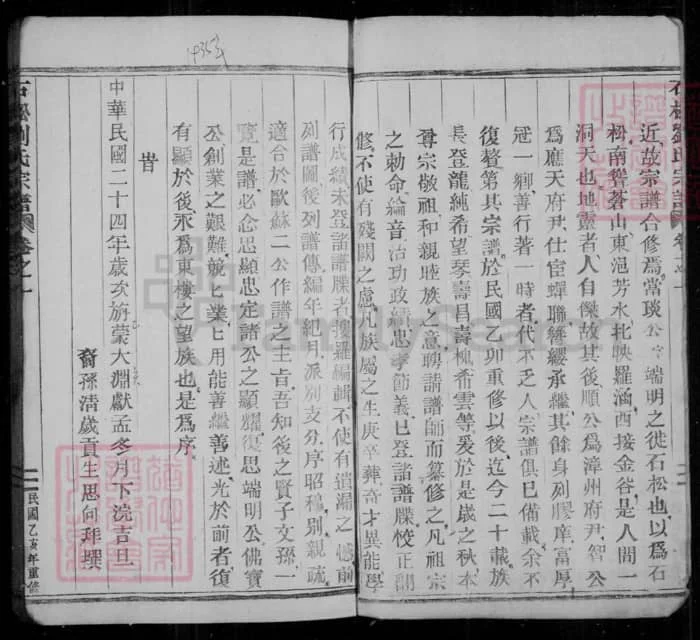 石松劉氏宗譜 卷之一
近故宗譜合修焉當琰公
端明之徙石松也以為石
松南響蒼山東浥芳水北映羅涵西接金谷是人間一
洞天也地靈者人自傑故其後順公為漳州府尹智公
為應天府尹仕宦蟬聯簪纓承繼其餘身列膠庠富厚
冠一鄉善行著一時者代不乏人宗譜俱已備載余不
復贅第其宗譜於民國乙卯重修以後迄今二十載族
長登龍純希望琴壽昌壽槐希雲等爰於是歲之秋本
尊宗敬祖和親睦族之意聘請譜師而纂修之凡祖宗
之勅命綸音治功政績忠孝節義已登諸譜牒校正訂
修不使有殘闕之處凡族屬之生庚卒葬奇才異能學
行成績未登諸譜牒者搜羅編輯不使有遺漏之憾前
列譜圖後列譜傳編年紀月派別支分序昭穆別親疏
適合於歐蘇二公作譜之主旨吾知後之賢子文孫一
覽是譜必念思顯忠定諸公之顯耀復思端明公佛寶
公創業之艱難兢匕業匕用能善繼善述光於前者復
有顯於後永為東樓之望族也是為序
旹
中華民國二十四年歲次旃蒙大淵獻孟冬月下浣吉旦
裔孫清歲貢生思向拜撰
石松劉氏宗譜 卷之一
二
民國乙亥年重修
FamilySearch